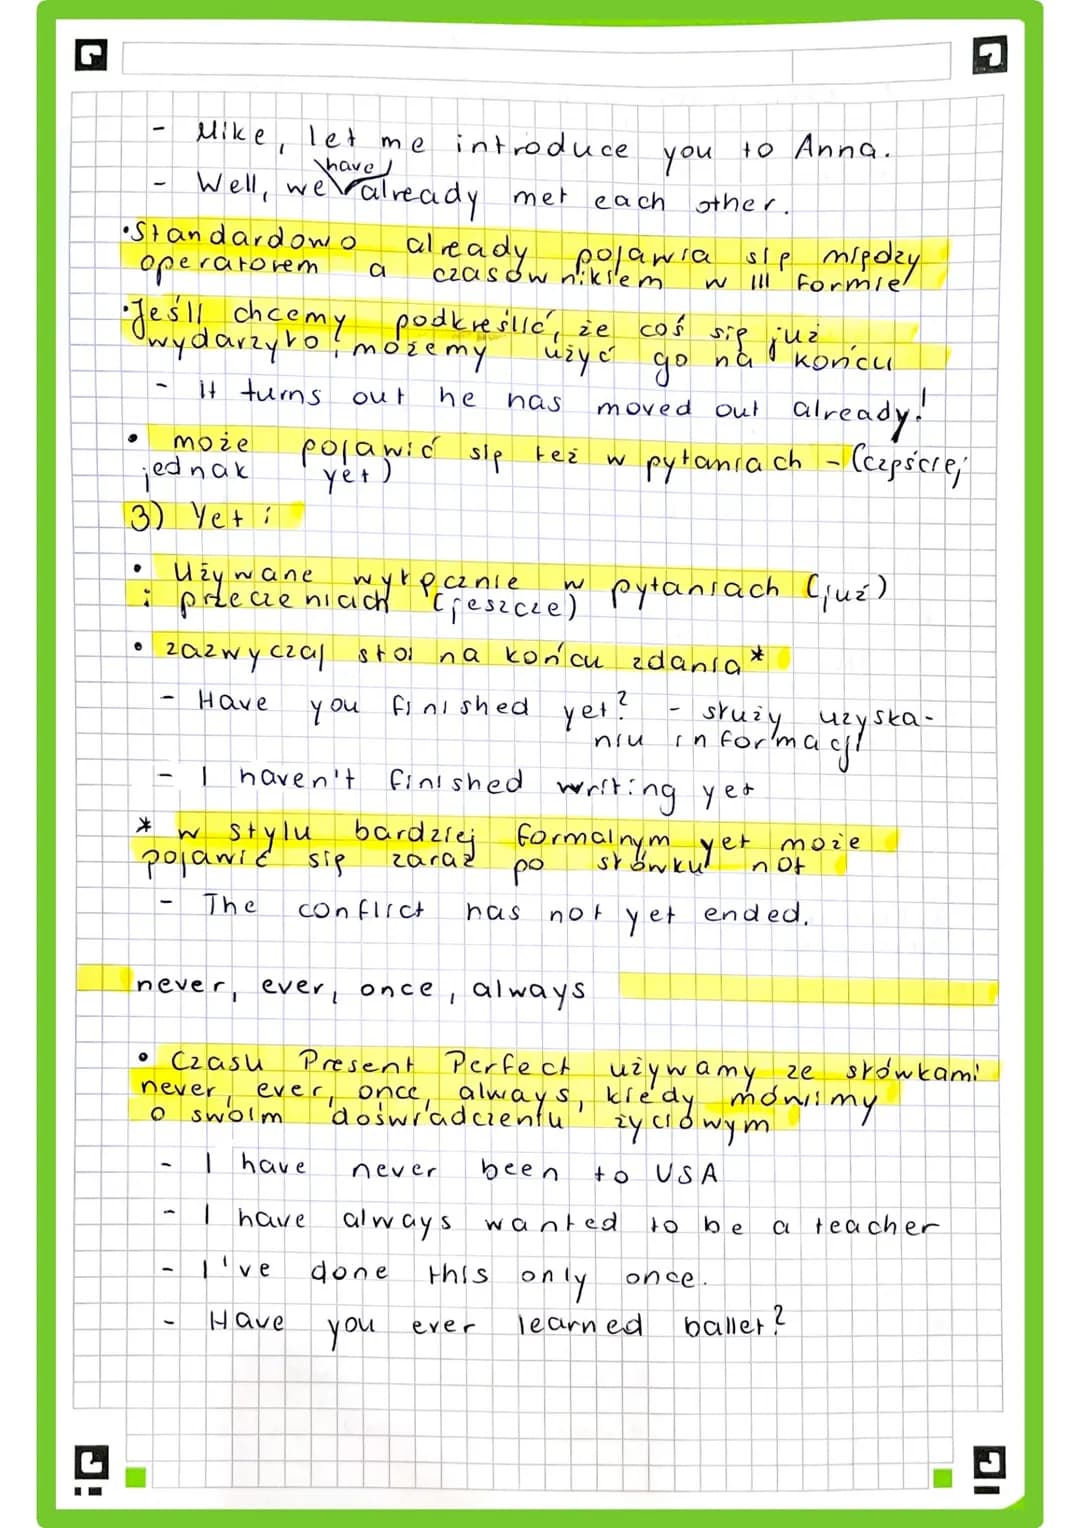 - Mike, let me introduce you to Anna.
have
- Well, we already met each other.
•Standardowo already pojawia się między
operatorem a czasownikiem w III formie
•Jeśli chcemy podkreślić, że coś się już
wydarzyło, możemy użyć go na końcu
- it turns out he has moved out already!
• może pojawić się też w pytaniach - (częściej
jednak yet)
3) Yet:
• Używane wyłącznie w pytaniach (już)
i przeczeniach (jeszcze)
• zazwyczaj stoi na końcu zdania*
- Have you finished yet? - służy uzyska-
niu informacji
- I haven't finished writing yet
* w stylu bardziej formalnym yet może
pojawić się zaraz po słówku not
- The conflict has not yet ended.
never, ever, once, always
• Czasu Present Perfect używamy ze słówkami
never, ever, once, always, kiedy mówimy
o swoim doświadczeniu życiowym
- I have never been to USA
- I have always wanted to be a teacher
- I've done this only once.
- Have you ever learned ballet?